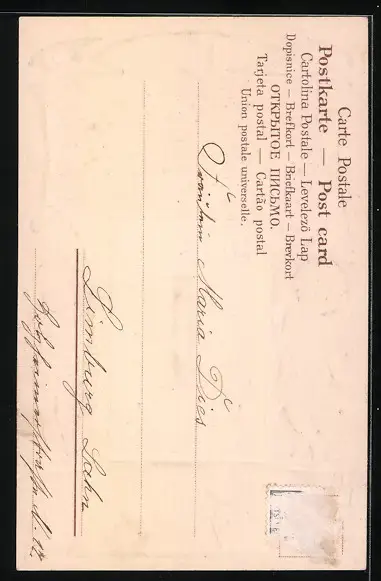 Carte Postale
Postkarte — Post card
Cartolina Postale — Levelező Lap
Dopisnice — Brefkort — Briefkaart — Brevkort
ОТКРЫТОЕ ПИСЬМО.
Tarjeta postal — Cartão postal
Union postale universelle.
Fräulein Maria Dies
Limburg Lahn